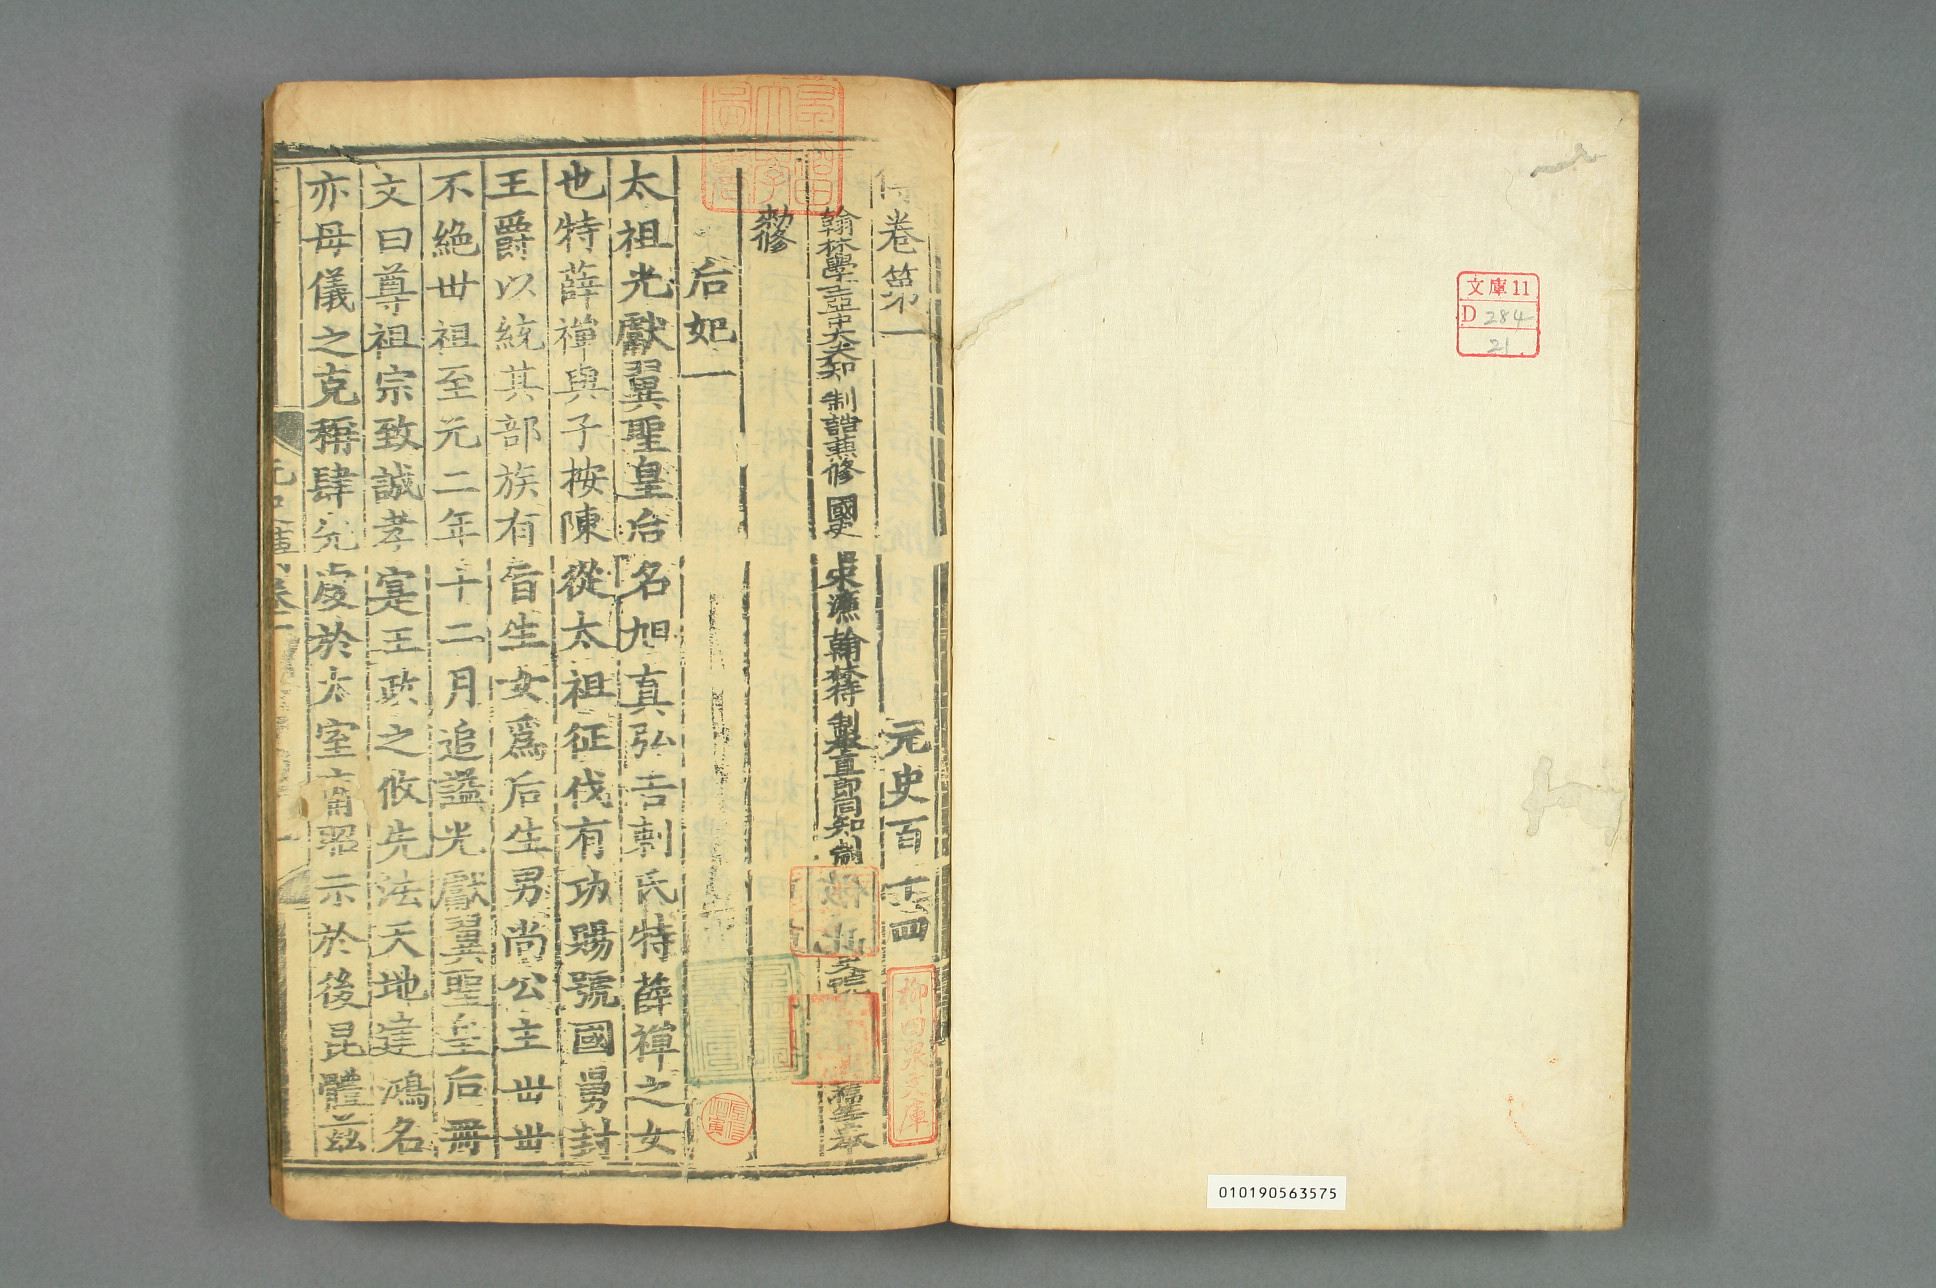 文庫11
D 284
21.
010190563575
傳卷第一
元史百十四
翰林學士亞中大夫知制誥兼修國史
宋濂翰林待制承直郎同知制
柳田泉文庫
勑修
后妃一
太祖光獻翼聖皇后名旭真弘吉剌氏特薛禪之女
也特薛禪與子按陳從太祖征伐有功賜號國舅封
王爵以統其部族有旨生女爲后生男尚公主世世
不絶世祖至元二年十二月追謚光獻翼聖皇后冊
文曰尊祖宗致誠孝寔王政之攸先法天地建鴻名
亦母儀之克稱肆先虔於太室庸昭示於後昆體茲